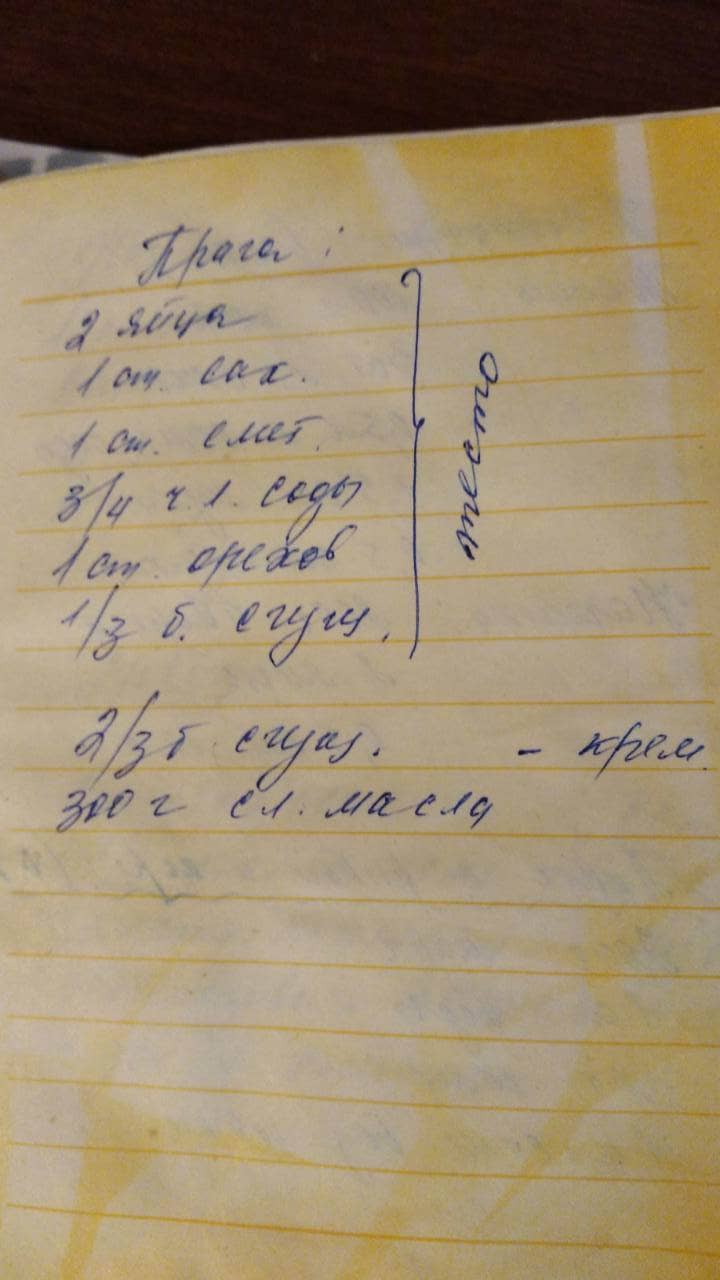 Прага :
2 яйца
1 ст. сах.
1 ст. смет.
3/4 ч.л. соды
1 ст. орехов
1/3 б. сгущ.
тесто
2/3 б сгущ. - крем
300 г сл. масла